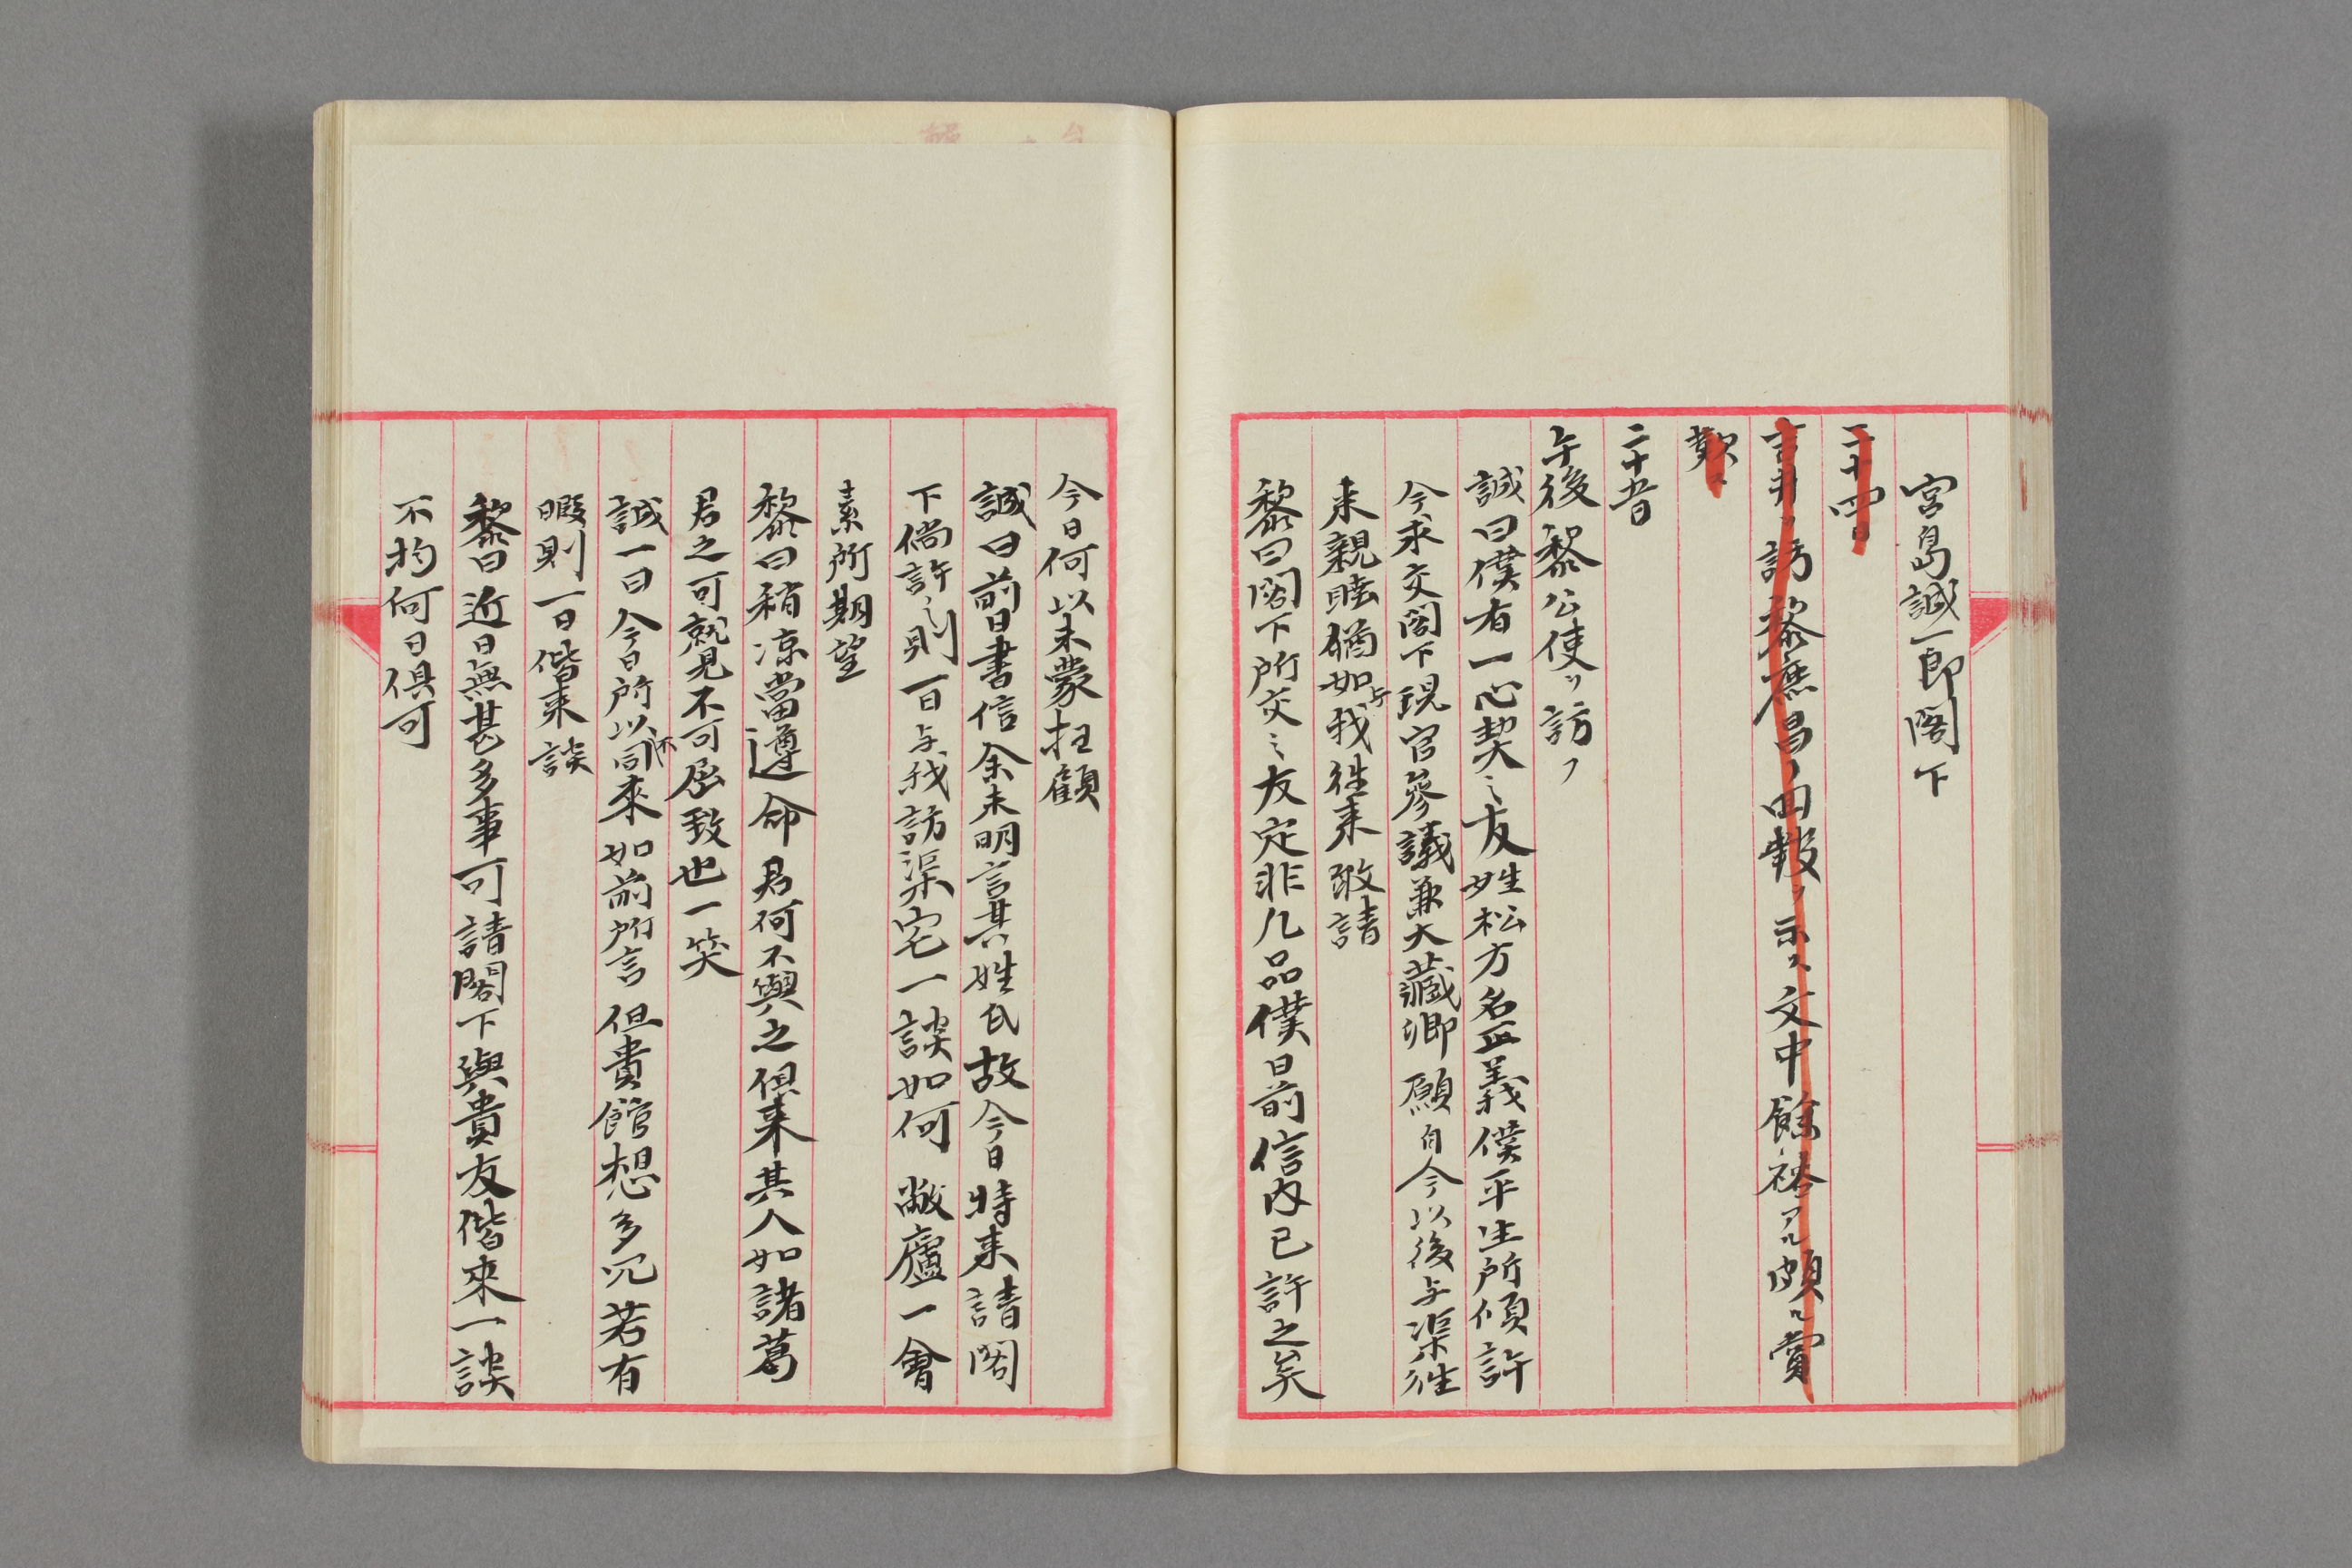 宮島誠一郎閣下
二十四日
吉井ヲ訪黎庶昌ノ回報ヲ示ス文中餘裕アル頗ル賞
歎ス
二十五日
午後黎公使ヲ訪フ
誠曰僕有一心契之友姓松方名正義僕平生所傾許
今求交閣下現官參議兼大藏卿願自今以後与渠往
来親睦猶如与我往来敢請
黎曰閣下所交之友定非凡品僕日前信内已許之矣
今日何以未蒙枉顧
誠曰前日書信余未明言其姓氏故今日特来請閣
下倘許之則一日与我訪渠宅一談如何敝廬一會
素所期望
黎曰稍涼當遵命君何不與之俱来其人如諸葛
君之可就見不可屈致也一笑
誠一曰今日所以不同來如前所言但貴館想多冗若有
暇則一日偕来談
黎曰近日無甚多事可請閣下與貴友偕來一談
不拘何日俱可